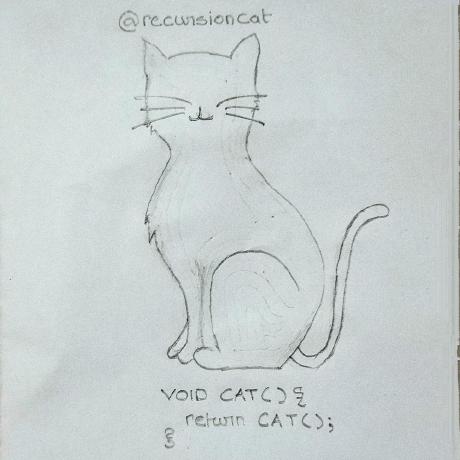 @recursioncat
VOID CAT(){
return CAT();
}